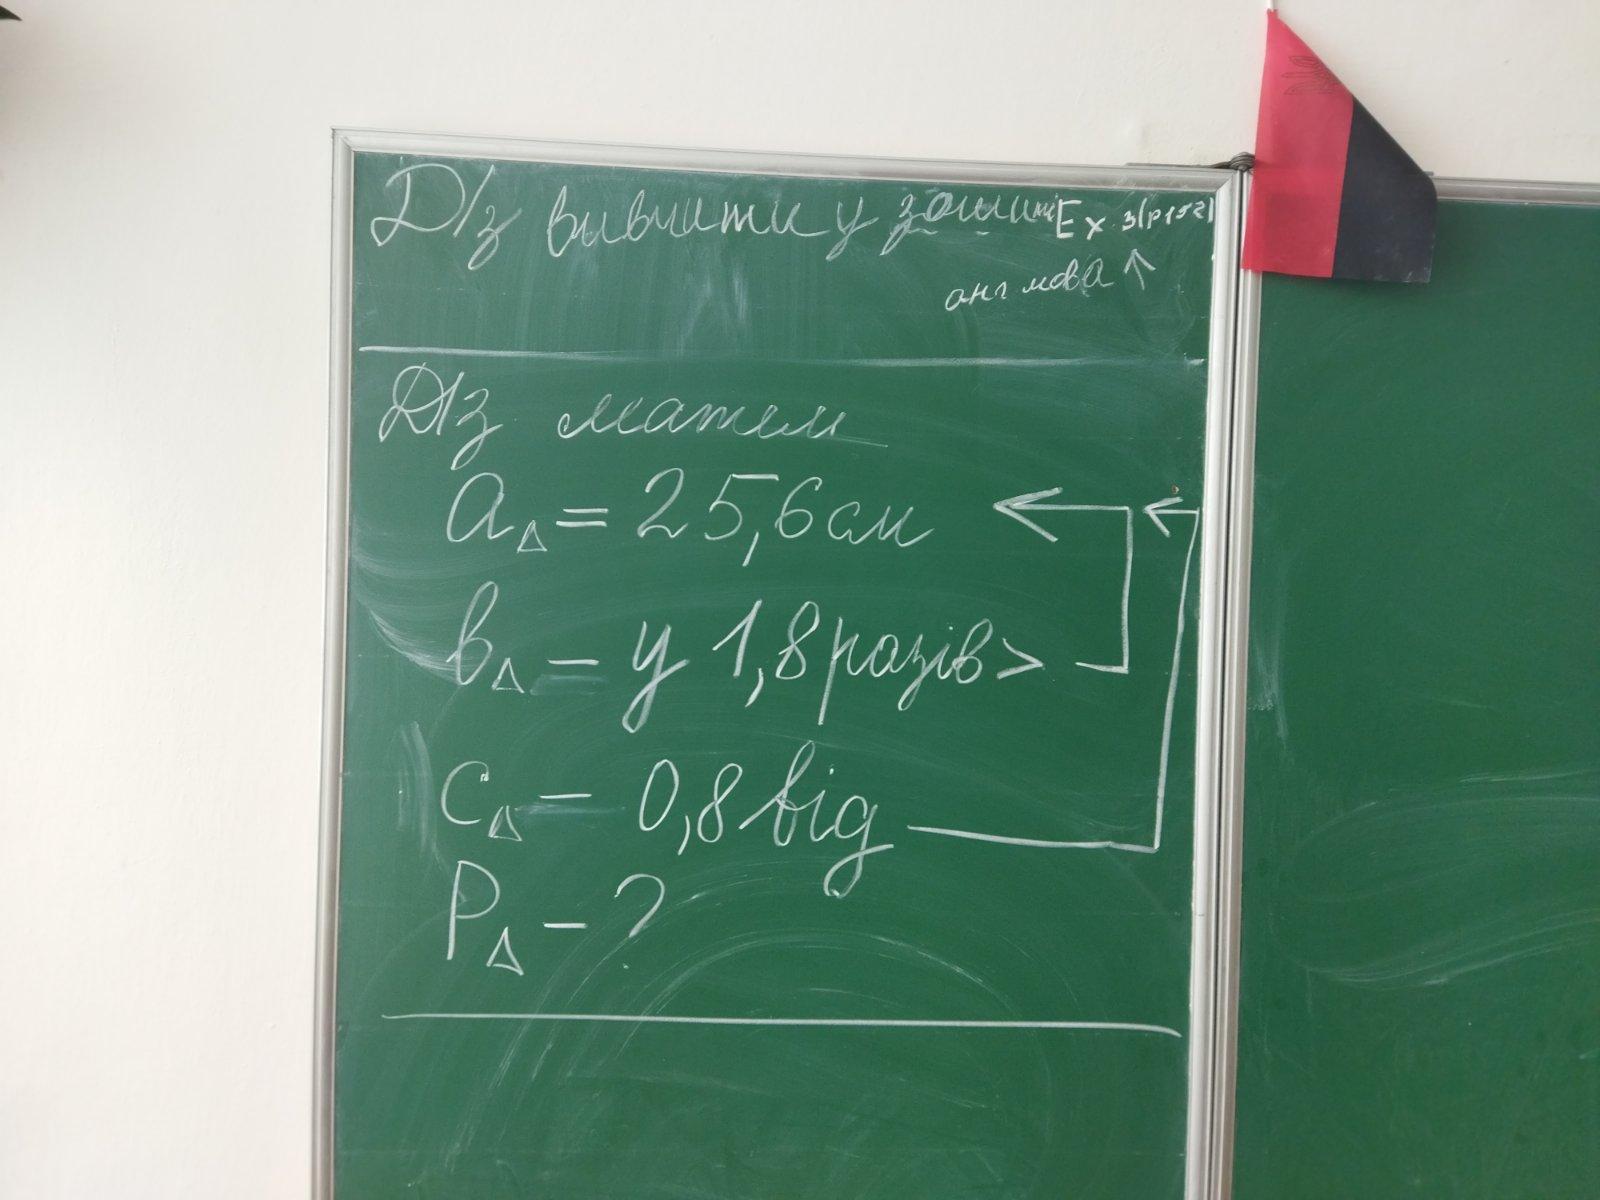 Д/з вивчити у зошиті Ex 3(p152)
анг мова ↑
Д/з матем
a△ = 25,6 см
в△ – у 1,8 разів >
c△ – 0,8 від
P△ – ?